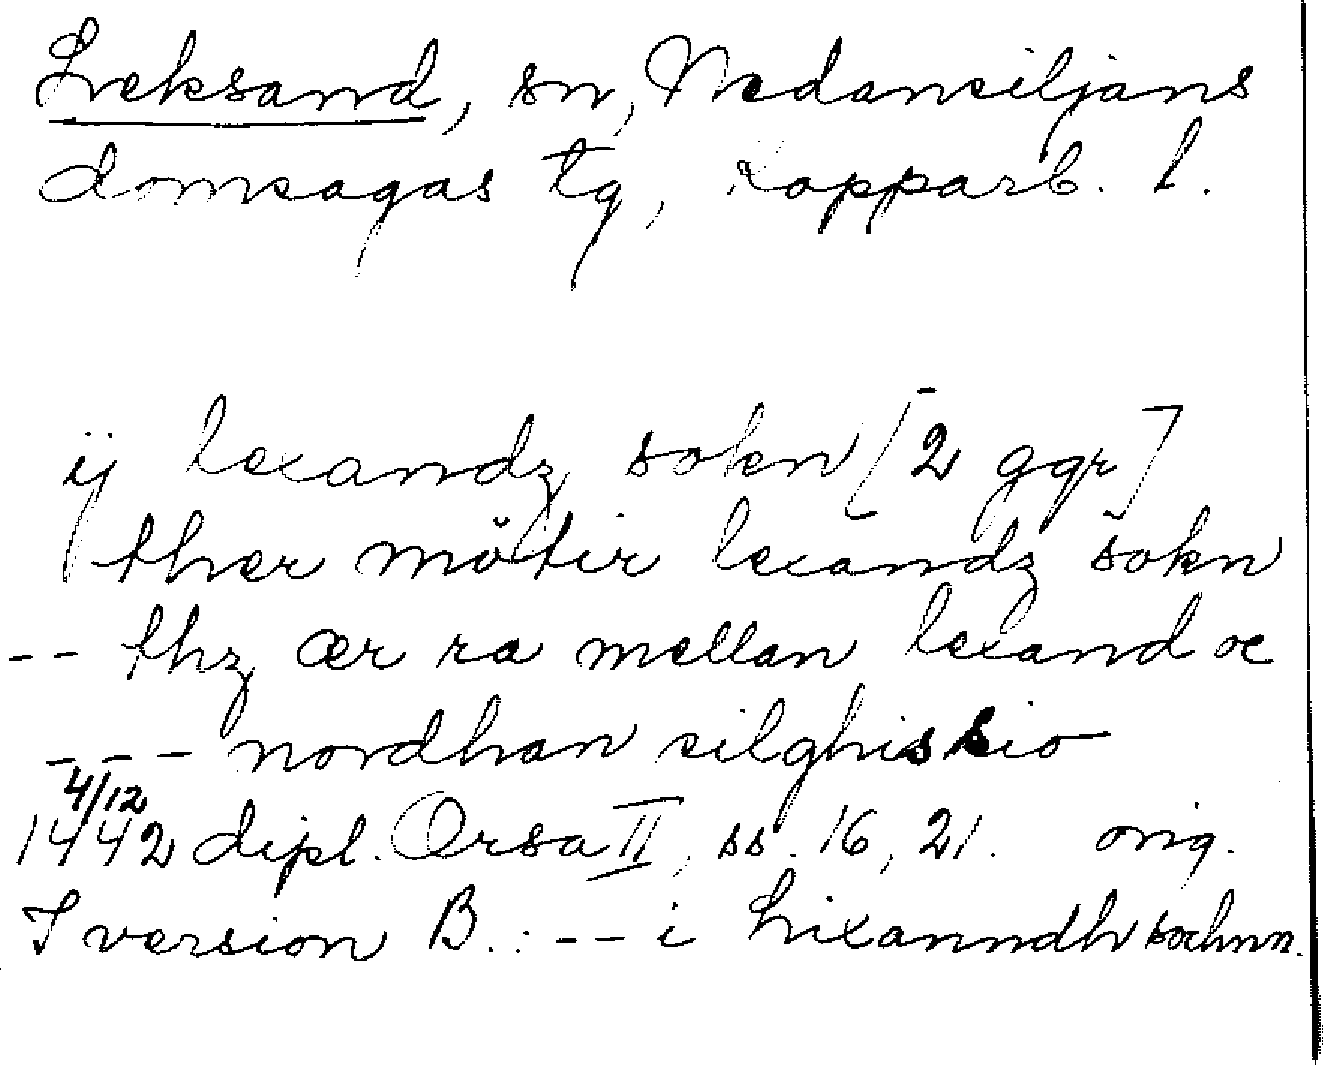 Leksand, sn, Nedansiljans
domsagas tg, Kopparb. l.
ij lexandz sokn [2 ggr]
ther mötir lexandz sokn
-- thz ær ra mellan lexand oc
--- nordhan silghissio
4/12
1442 dipl. Orsa II, ss. 16, 21. orig.
I version B.: -- i Lixanndh sochnn.